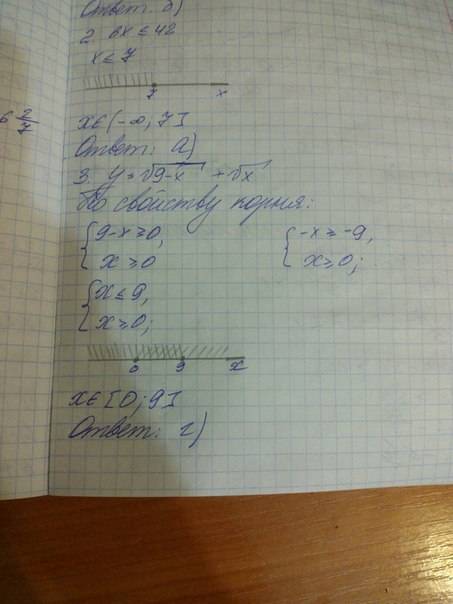 Ответ: б)
2. 6x ≤ 42
x ≤ 7
7 x
6 2/7
x ∈ (-∞, 7]
Ответ: а)
3. y = √9-x + √x
По свойству корня:
{ 9-x ≥ 0, { -x ≥ -9,
x ≥ 0 x ≥ 0;
{ x ≤ 9,
x ≥ 0;
0 9 x
x ∈ [0; 9]
Ответ: г)